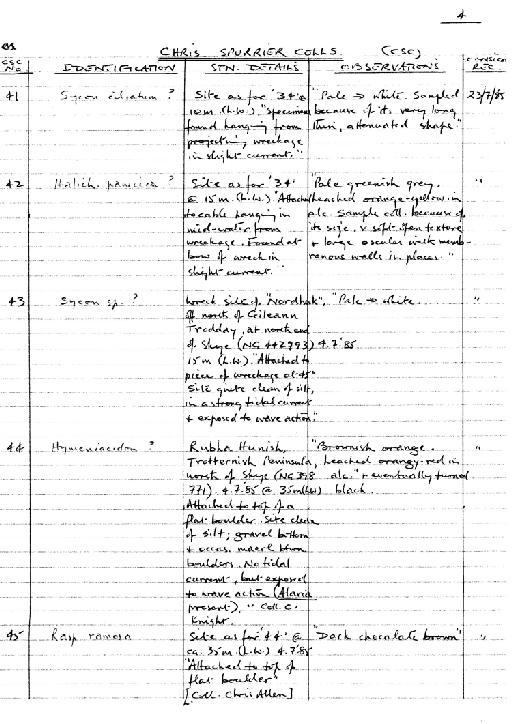 4
CHRIS SPURRIER COLLS. (CSC)
CSC NO IDENTIFICATION STN. DETAILS OBSERVATIONS REC.
41 Sycon ciliatum ? Site as for '34' @ "Pale → white. Sampled 23/7/85
15m (L.W.). "Specimen because of its very long
found hanging from thin, attenuated shape"
projecting wreckage
in slight current."
42 Halich. panicea ? Site as for '34' "Pale greenish grey. "
@ 15m (L.W.) "Attached leached orange-yellow in
to cable hanging in alc. Sample coll. because of
mid-water from its size, v. soft open texture
wreckage. Found at + large oscular walls memb-
bow of wreck in ranous walls in places."
slight current."
43 Sycon sp. ? Wreck site of "Nordhak", "Pale → white. "
off north of Eileann
Trodday, at north end
of Skye (NG 442793) 4.7.85
15m (L.W.) "Attached to
piece of wreckage at 45°
Site quite clean of silt,
in a strong tidal current
+ exposed to wave action."
44 Hymeniacidon ? Rubha Hunish, "Brownish orange. "
Trotternish Peninsula, leached orangy-red in
north of Skye (NG 398 alc." + eventually turned
771) 4.7.85 @ 35m (LW) black.
Attached to top of a
flat boulder. Site clean
of silt; gravel bottom
+ occas. maerl btwn
boulders. No tidal
current, but exposed
to wave action (Alaria
present)." Coll. C.
Knight.
45 Rasp. ramosa Site as for '44' @ "Dark chocolate brown" "
ca. 35m (L.W.) 4.7.85
"Attached to top of
flat boulder"
[Coll. Chris Allen]